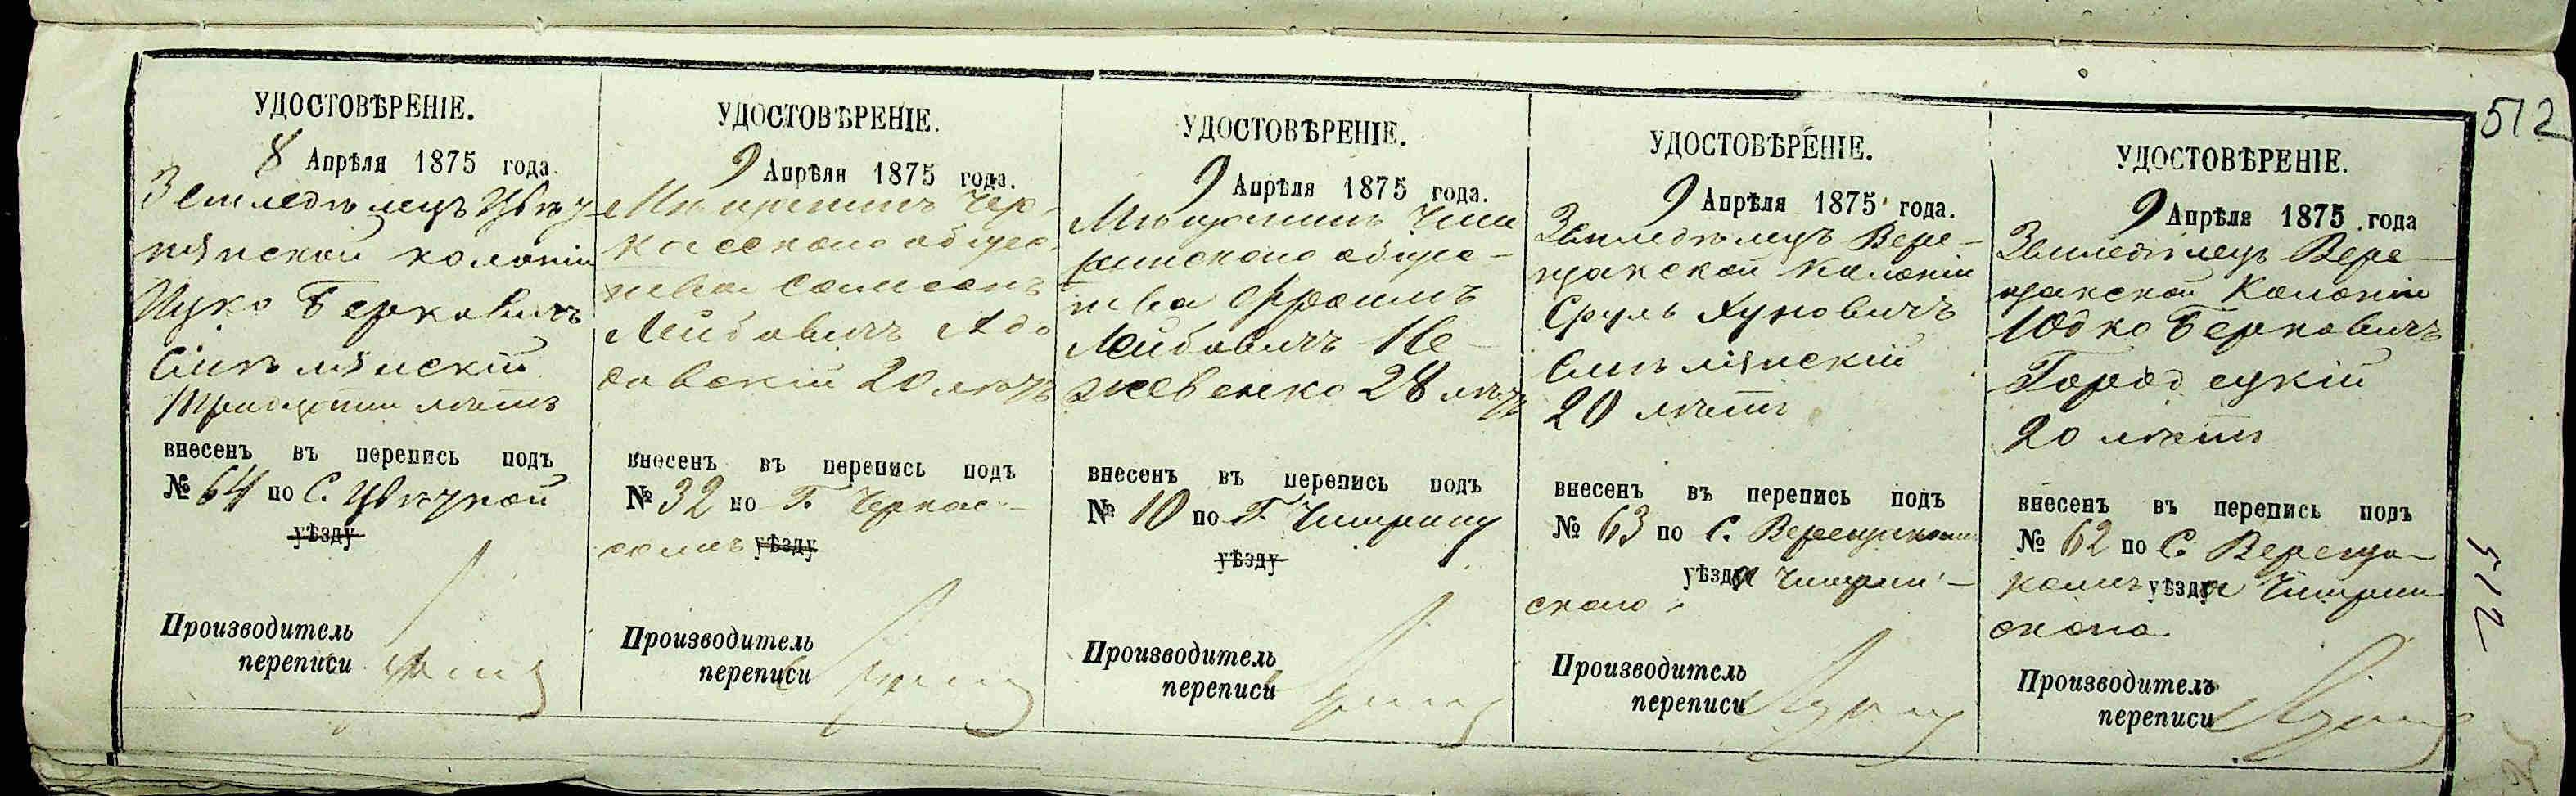 512
УДОСТОВѢРЕНІЕ.
8 Апрѣля 1875 года.
Земледѣлецъ Цвѣт-
нянской колоніи
Ицко Берковичъ
Смѣлянскій
Тридцати лѣтъ
внесенъ въ перепись подъ
№ 64 по С. Цвѣтной
уѣзду
Производитель
переписи
УДОСТОВѢРЕНІЕ.
9 Апрѣля 1875 года.
Мѣщанинъ Чер-
касскаго общес-
тва Самсонъ
Лейбовичъ
20 лѣтъ
внесенъ въ перепись подъ
№ 32 по Г. Черкас-
самъ уѣзду
Производитель
переписи
УДОСТОВѢРЕНІЕ.
9 Апрѣля 1875 года.
Мѣщанинъ Чиги
ринскаго общес-
тва Фроимъ
Лейбовичъ Не-
жевенко 28 лѣтъ
внесенъ въ перепись подъ
№ 10 по Г. Чигрину
уѣзду
Производитель
переписи
УДОСТОВѢРЕНІЕ.
9 Апрѣля 1875 года.
Земледѣлецъ Вере-
щакской Колоніи
Сруль Хуновичъ
Смѣлянскій
20 лѣтъ
внесенъ въ перепись подъ
№ 63 по С. Верещакамъ
уѣзда Чигрин-
скаго
Производитель
переписи
УДОСТОВѢРЕНІЕ.
9 Апрѣля 1875 года
Земледѣлецъ Вере-
щакской Колоніи
Юдко Берковичъ
Городецкій
20 лѣтъ
внесенъ въ перепись подъ
№ 62 по С. Вереща-
камъ уѣзда Чигрин
скаго.
Производитель
переписи
512